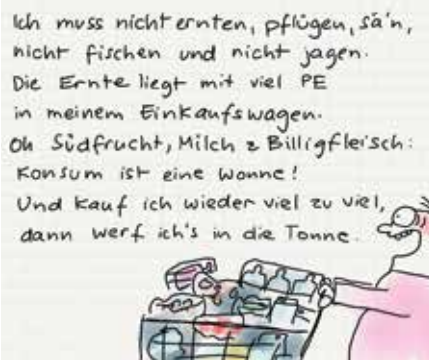 Ich muss nicht ernten, pflügen, sä'n,
nicht fischen und nicht jagen.
Die Ernte liegt mit viel PE
in meinem Einkaufswagen.
Oh Südfrucht, Milch & Billigfleisch:
Konsum ist eine Wonne!
Und kauf ich wieder viel zu viel,
dann werf ich's in die Tonne.